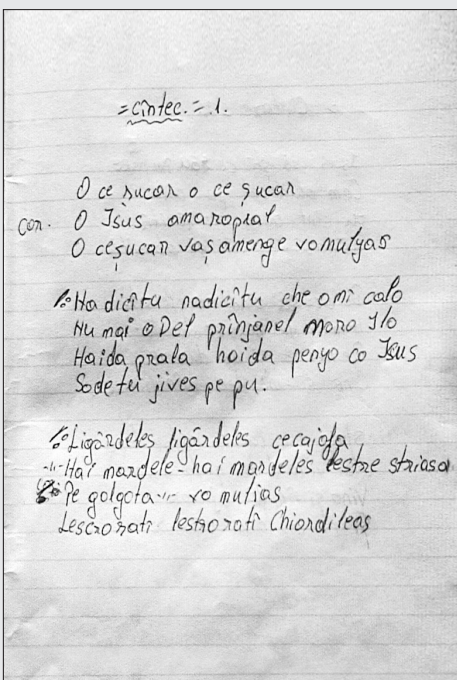 =cîntec.=.1.
O ce șucar o ce șucar
cor. O Isus amaropral
O ceșucar vaș amenge vomulyas
/: Na dicîtu nadicîtu che omi calo
Nu mai o Del prînjanel moro Ilo
Haida prala haida penyo co Isus
Sodetu jives pe pu.
/: Ligărdeles ligărdeles cecajola
-"- Hai mardele-hai mardeles lestre striasa
Pe golgota -"- vo mulias
Lescro rati lestro rati Chiordileas